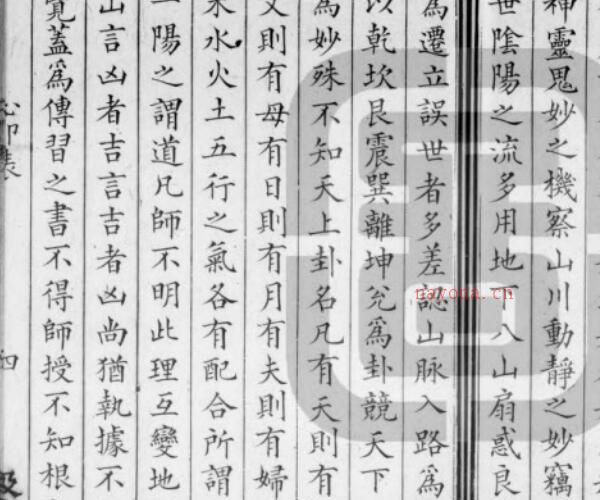 神靈鬼妙之機察山川動靜之妙竊
世陰陽之流多用地下八山扇惑良
為遷立誤世者多差認山脉入路為
以乾坎艮震巽離坤兊為卦競天下
為妙殊不知天上卦名凡有天則有
父則有母有日則有月有夫則有婦
木水火土五行之氣各有配合所謂
一陽之謂道凡師不明此理互變地
山言凶者吉言吉者凶尚猶執據不
覓蓋為傳習之書不得師授不知根
四
nayona.cn